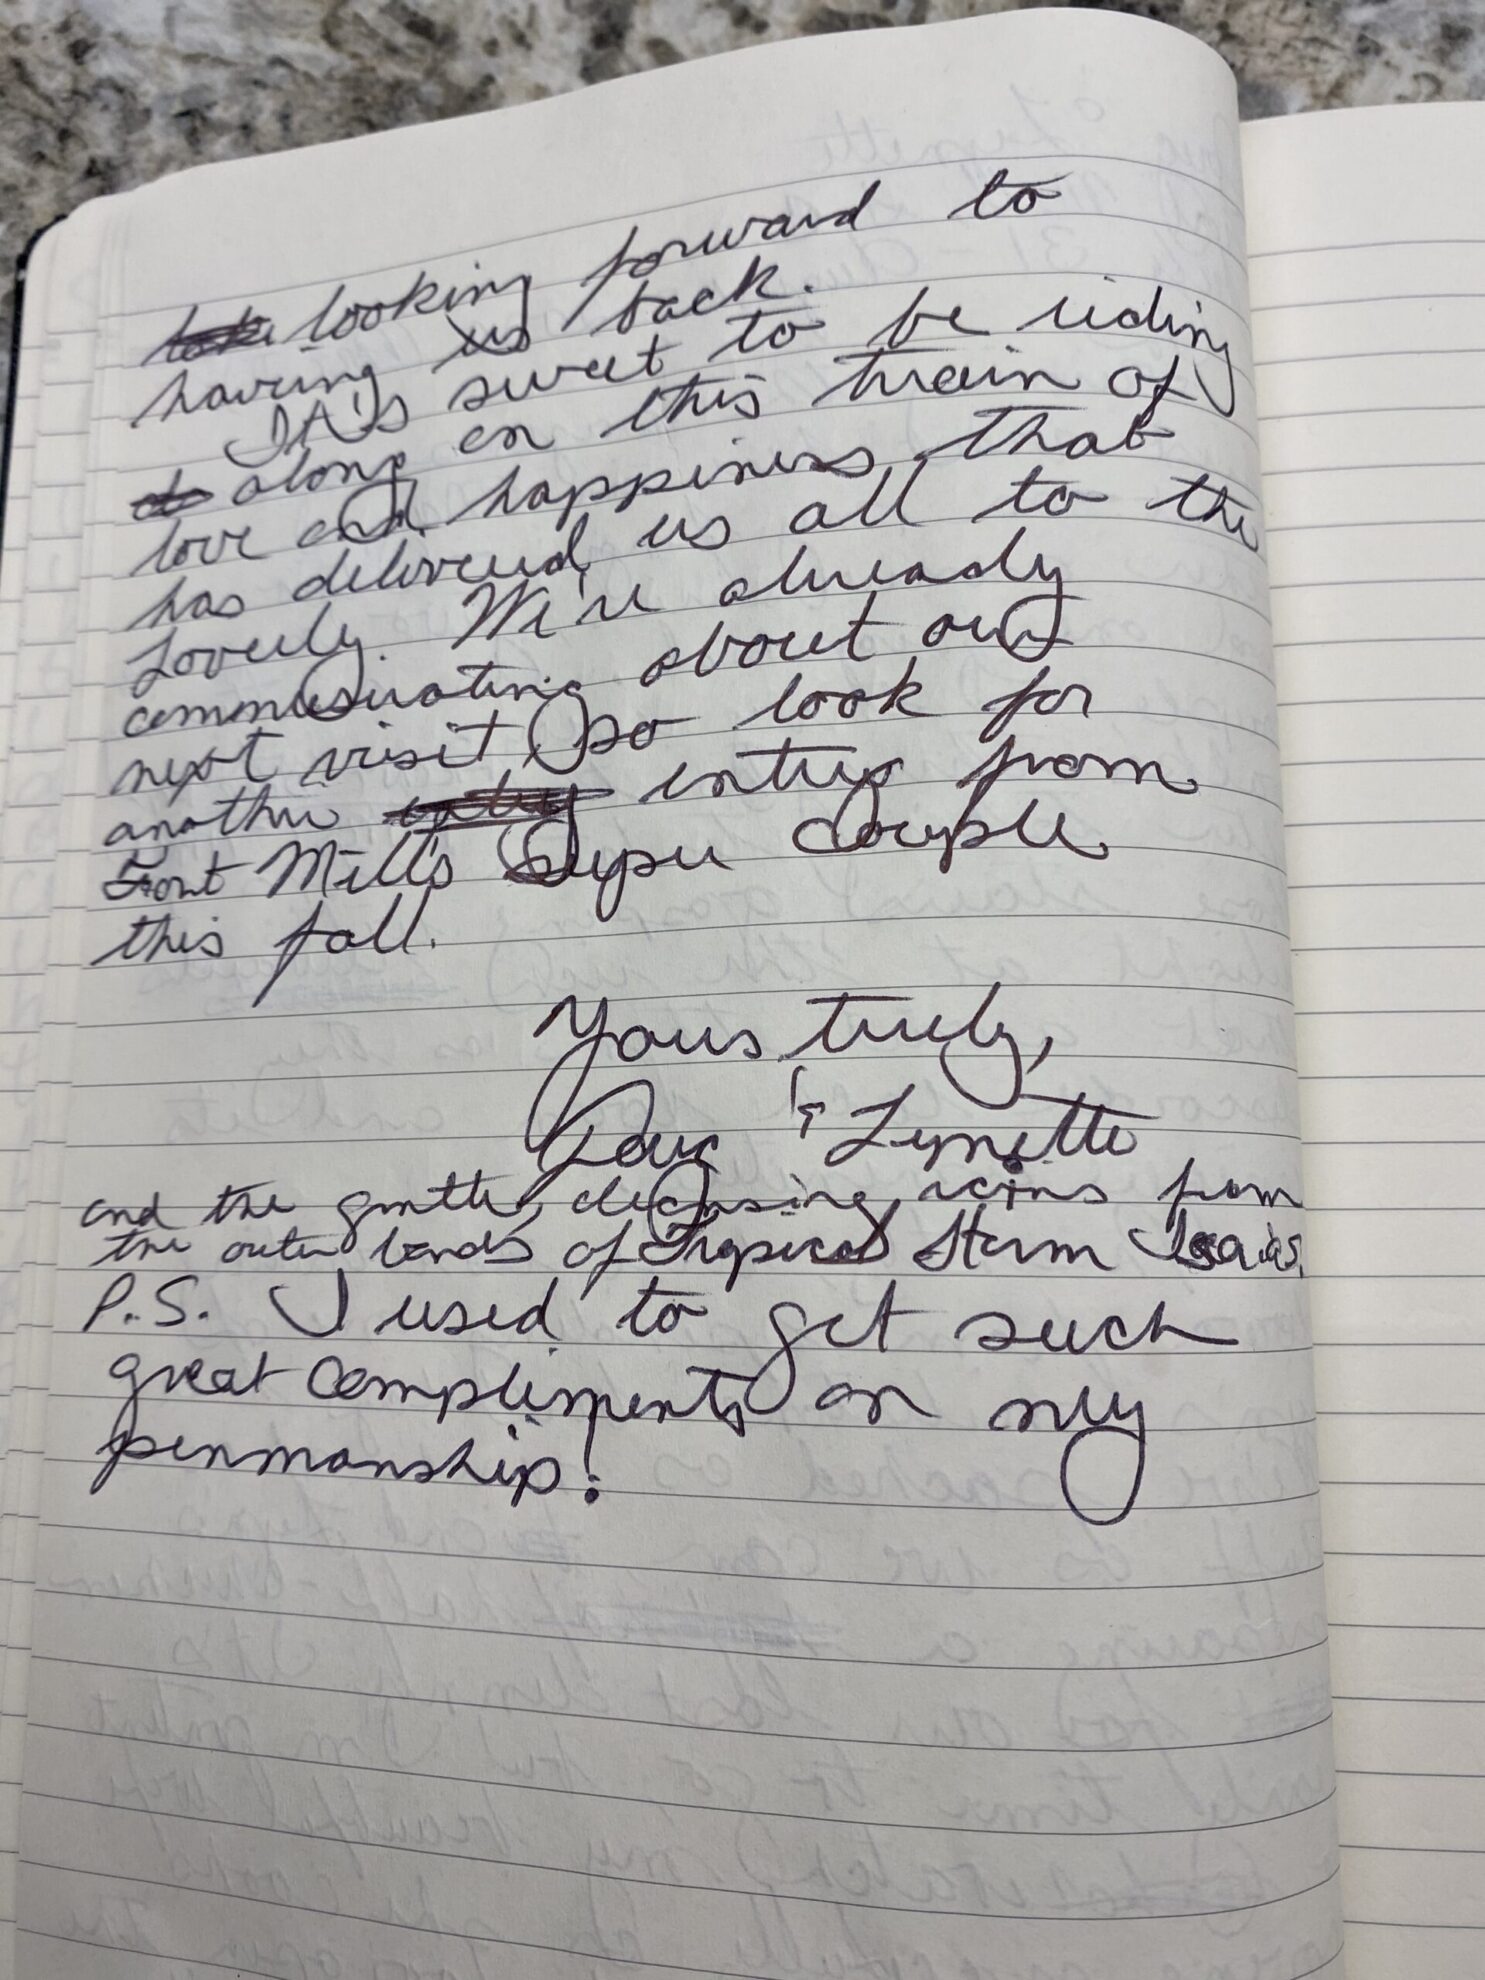 looking forward to
having us back.
It's sweet to be riding
along on this train of
love and happiness that
has delivered us all to the
Loverly. We're already
about our
next visit, so look for
another entry from
Font Mill's Super Couple
this fall.
Yours truly,
Doug & Lynette
and the gentle, decreasing rains from
the outer bands of Tropical Storm Isaias.
P.S. I used to get such
great compliments on my
penmanship!